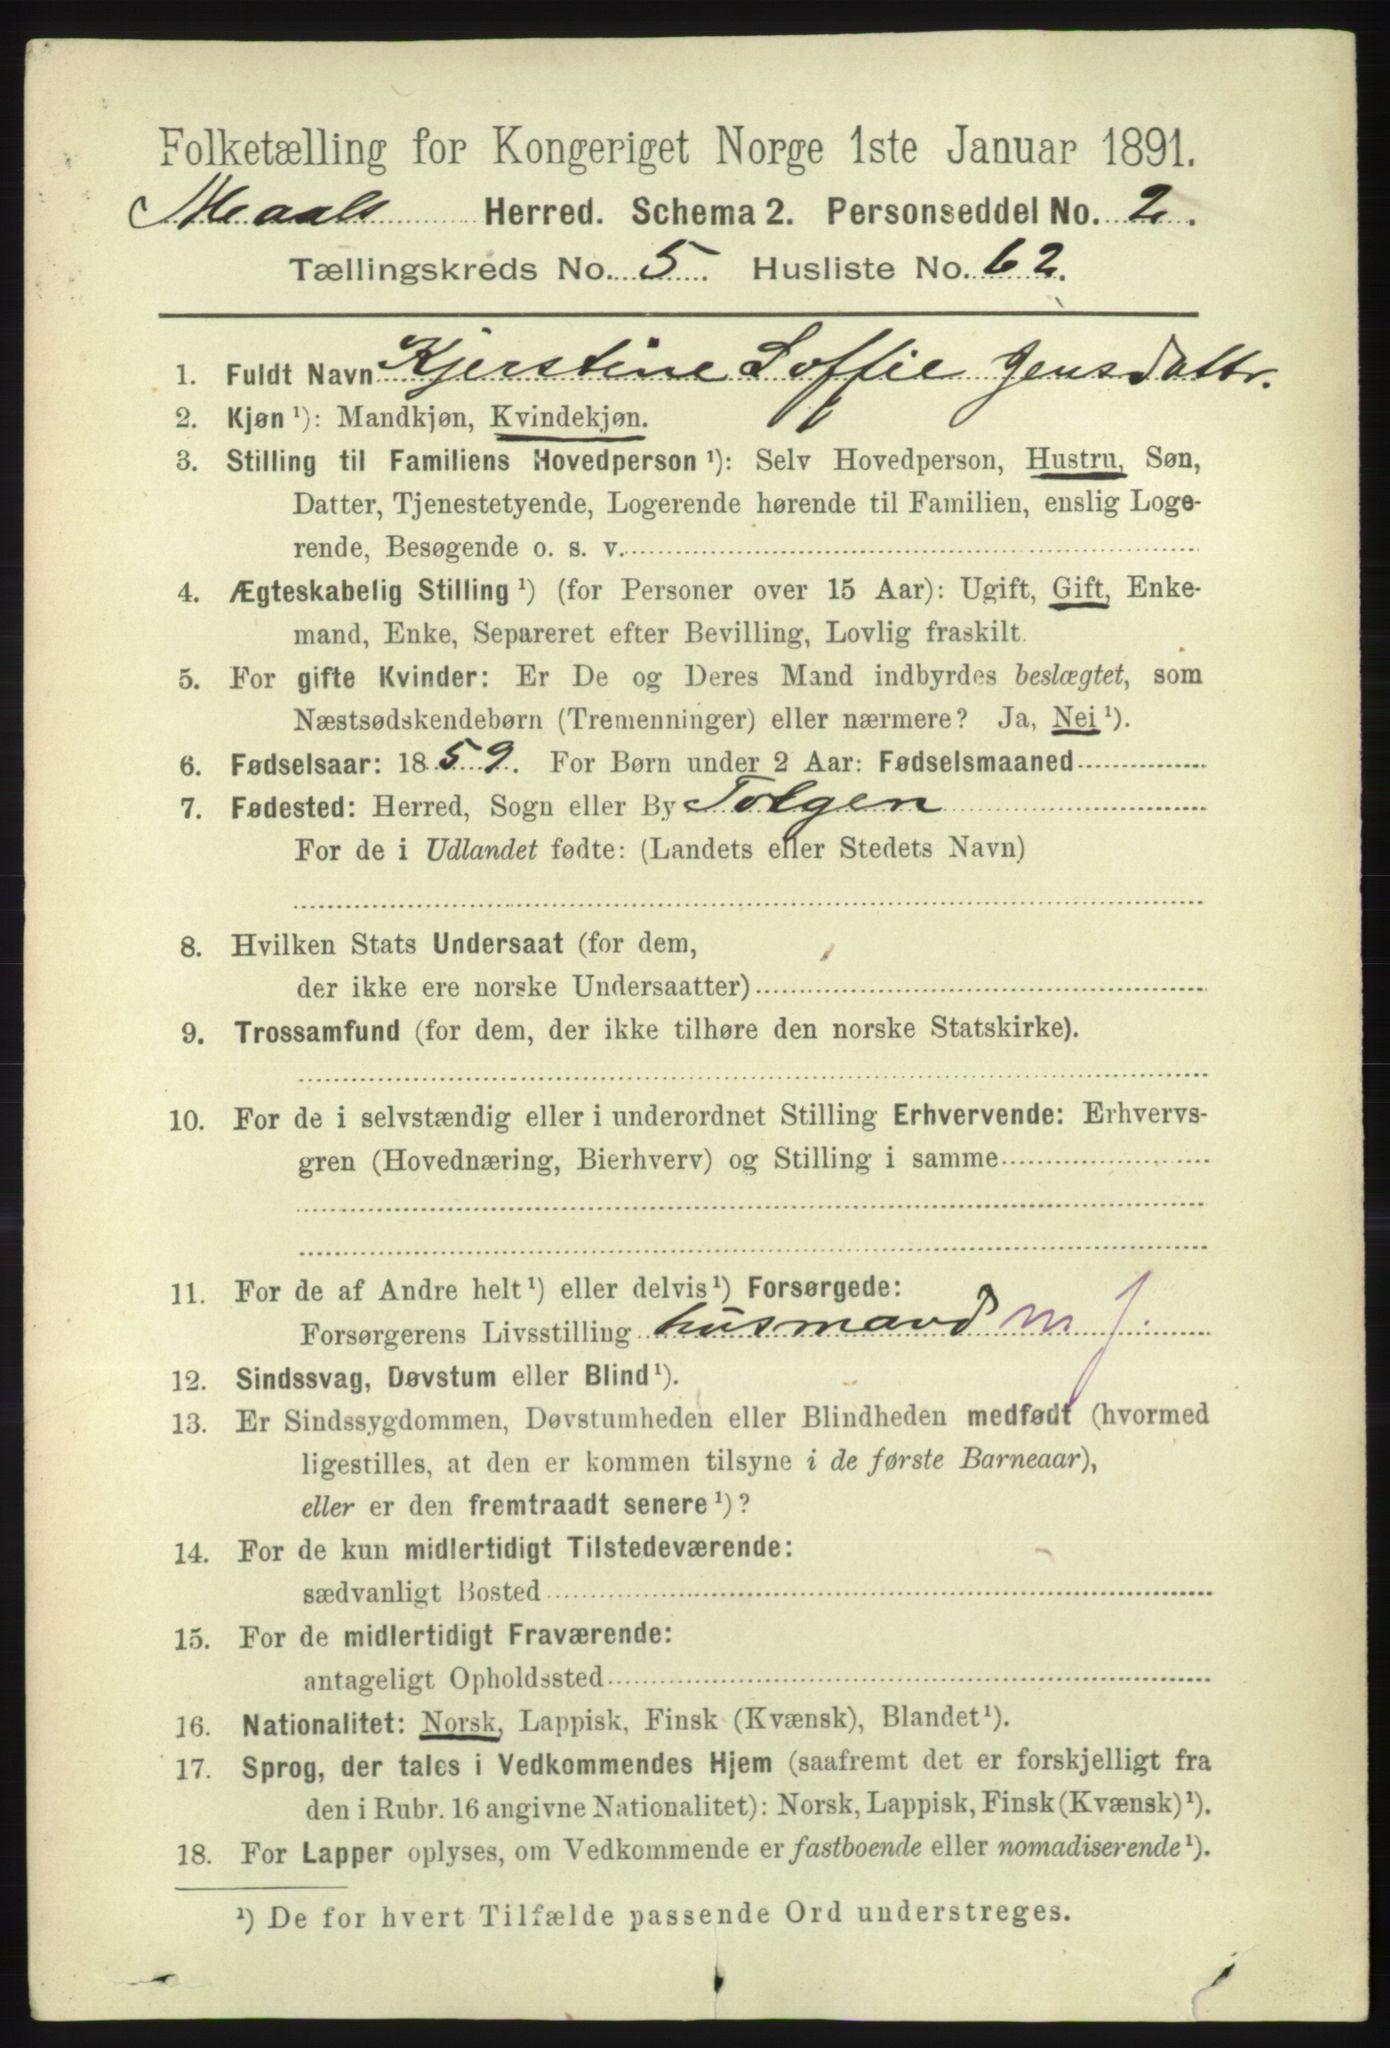 Folketælling for Kongeriget Norge 1ste Januar 1891.
Maals Herred. Schema 2. Personseddel No. 2.
Tællingskreds No. 5. Husliste No. 62.
1. Fuldt Navn Kjerstine Soffie Jensdattr.
2. Kjøn ¹): Mandkjøn, Kvindekjøn.
3. Stilling til Familiens Hovedperson ¹): Selv Hovedperson, Hustru, Søn,
Datter, Tjenestetyende, Logerende hørende til Familien, enslig Loge-
rende, Besøgende o. s. v.
4. Ægteskabelig Stilling ¹) (for Personer over 15 Aar): Ugift, Gift, Enke-
mand, Enke, Separeret efter Bevilling, Lovlig fraskilt.
5. For gifte Kvinder: Er De og Deres Mand indbyrdes beslægtet, som
Næstsødskendebørn (Tremenninger) eller nærmere? Ja, Nei ¹).
6. Fødselsaar: 1859. For Børn under 2 Aar: Fødselsmaaned
7. Fødested: Herred, Sogn eller By Tolgen
For de i Udlandet fødte: (Landets eller Stedets Navn)
8. Hvilken Stats Undersaat (for dem,
der ikke ere norske Undersaatter)
9. Trossamfund (for dem, der ikke tilhøre den norske Statskirke).
10. For de i selvstændig eller i underordnet Stilling Erhvervende: Erhvervs-
gren (Hovednæring, Bierhverv) og Stilling i samme
11. For de af Andre helt ¹) eller delvis ¹) Forsørgede:
Forsørgerens Livsstilling husmand m J.
12. Sindssvag, Døvstum eller Blind ¹).
13. Er Sindssygdommen, Døvstumheden eller Blindheden medfødt (hvormed
ligestilles, at den er kommen tilsyne i de første Barneaar),
eller er den fremtraadt senere ¹)?
14. For de kun midlertidigt Tilstedeværende:
sædvanligt Bosted
15. For de midlertidigt Fraværende:
antageligt Opholdssted
16. Nationalitet: Norsk, Lappisk, Finsk (Kvænsk), Blandet ¹).
17. Sprog, der tales i Vedkommendes Hjem (saafremt det er forskjelligt fra
den i Rubr. 16 angivne Nationalitet): Norsk, Lappisk, Finsk (Kvænsk) ¹).
18. For Lapper oplyses, om Vedkommende er fastboende eller nomadiserende ¹).
¹) De for hvert Tilfælde passende Ord understreges.